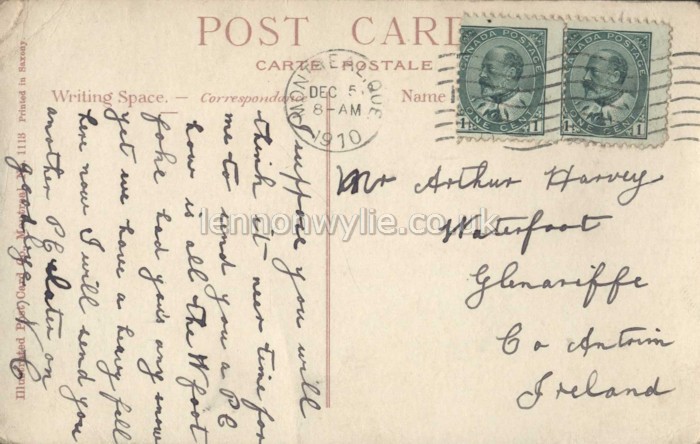 POST CARD
CARTE POSTALE
Writing Space. — Correspondance
Name
MONTREAL, QUE
DEC 5
8-AM
1910
CANADA POSTAGE
1 ONE CENT 1
CANADA POSTAGE
1 ONE CENT 1
Mr Arthur Harvey
Waterfoot
Glenariffe
Co Antrim
Ireland
I suppose you will
think it near time for
me to send you a PC
how is all the Wfoot
foke had yous any snow
yet we have a heavy fall
here now I will send you
another PC later on
goodbye
Illustrated Post Card Co., Montreal
1118 Printed in Saxony
lennonwylie.co.uk